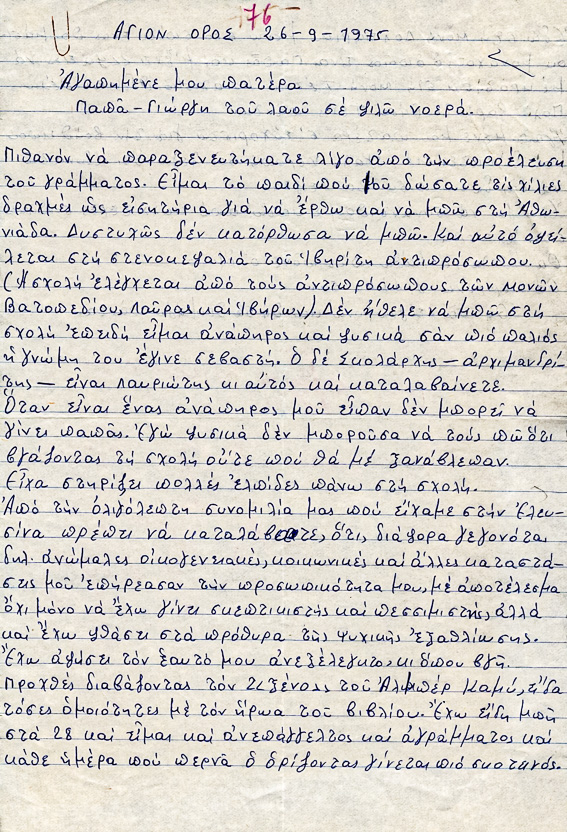 76
ΑΓΙΟΝ ΟΡΟΣ 26-9-1975
Ἀγαπημένε μου πατέρα
Παπᾶ-Γιώργη τοῦ λαοῦ σέ φιλῶ νοερά.
Πιθανόν νά παραξενευτήκατε λίγο ἀπό τήν προέλευση
τοῦ γράμματος. Εἶμαι τό παιδί πού μοῦ δώσατε τίς χίλιες
δραχμές ὡς εἰσητήρια γιά νά ἔρθω καί νά μπῶ στή Ἀθω-
νιάδα. Δυστυχῶς δέν κατόρθωσα νά μπῶ. Καί αὐτό ὀφεί-
λεται στή στενοκεφαλιά τοῦ Ἰβηρίτη ἀντιπρόσωπου.
(Ἡ σχολή ἐλέγχεται ἀπό τούς ἀντιπρόσωπους τῶν μονῶν
Βατοπεδίου, Λαύρας καί Ἰβήρων). Δέν ἤθελε νά μπῶ στή
σχολή ἐπειδή εἶμαι ἀνάπηρος καί φυσικά σάν πιό παλιός
ἡ γνώμη του ἔγινε σεβαστή. Ὁ δέ Σχολάρχης - ἀρχιμανδρί-
της - εἶναι Λαυριώτης κι αὐτός καί καταλαβαίνετε.
Ὅταν εἶναι ἕνας ἀνάπηρος μοῦ εἶπαν δέν μπορεῖ νά
γίνει παπᾶς. Ἐγώ φυσικά δέν μποροῦσα νά τούς πῶ ὅτι
βγάζοντας τή σχολή οὔτε πού θά μέ ξανάβλεπαν.
Εἶχα στηρίξει πολλές ἐλπίδες πάνω στή σχολή.
Ἀπό τήν ὀλιγόλεπτη συνομιλία μας πού εἴχαμε στήν Ἐλευ-
σίνα πρέπει νά καταλάβατε, ὅτι, διάφορα γεγονότα
δηλ. ἀνώμαλες οἰκογενειακές, κοινωνικές καί ἄλλες καταστά-
σεις μοῦ ἐπηρέασαν τήν προσωπικότητα μου, μέ ἀποτέλεσμα
ὄχι μόνο νά ἔχω γίνει σκεπτικιστής καί πεσσιμιστής, ἀλλά
καί ἔχω φθάσει στά πρόθυρα τῆς ψυχικῆς ἐξαθλίωσης.
Ἔχω ἀφίσει τόν ἑαυτό μου ἀνεξέλεγκτο, κι ὅπου βγῆ.
Προχθές διαβάζοντας τόν "Ξένο" τοῦ Ἀλμπέρ Καμύ, εἶδα
τόσες ὁμοιότητες μέ τόν ἥρωα τοῦ βιβλίου. Ἔχω εἴδη μπῆ
στά 28 καί εἶμαι καί ἀνεπάγγελτος καί ἀγράμματος καί
κάθε ἡμέρα πού περνᾶ ὁ ὁρίζοντας γίνεται πιό σκοτεινός.